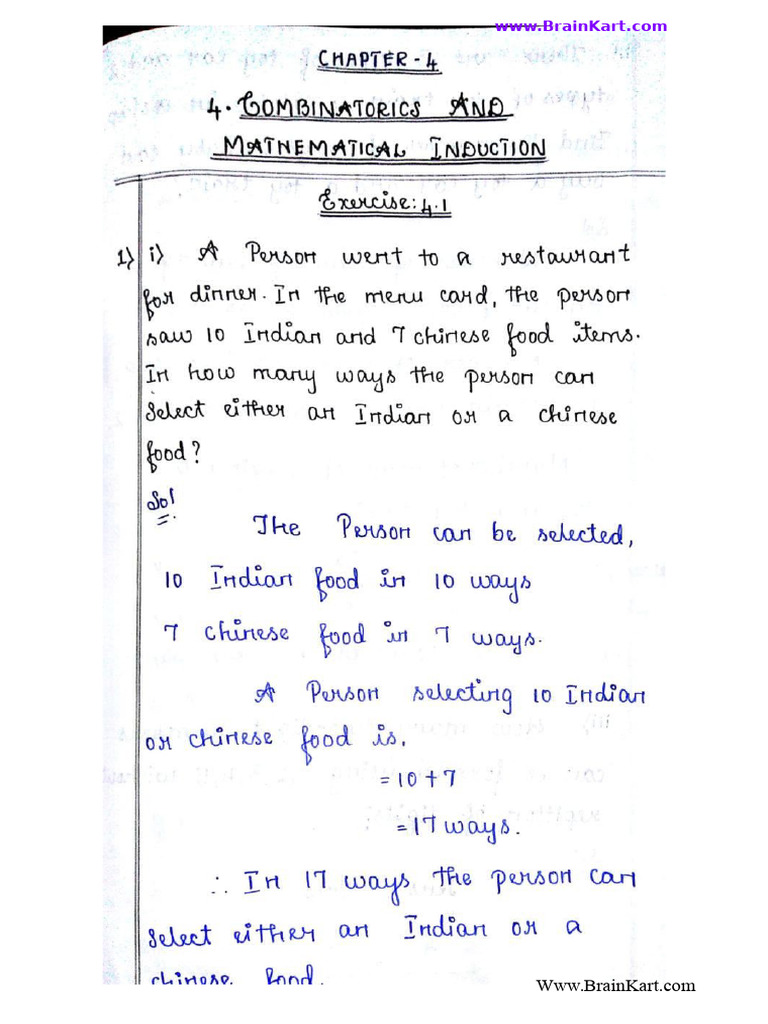 www.BrainKart.com
CHAPTER - 4
4. COMBINATORICS AND
MATHEMATICAL INDUCTION
Exercise: 4.1
1) i) A Person went to a restaurant
for dinner. In the menu card, the person
saw 10 Indian and 7 chinese food items.
In how many ways the person can
select either an Indian or a chinese
food?
Sol
The Person can be selected,
10 Indian food in 10 ways
7 chinese food in 7 ways.
A Person selecting 10 Indian
or chinese food is,
= 10 + 7
= 17 ways.
∴ In 17 ways the person can
select either an Indian or a
chinese food.
Www.BrainKart.com